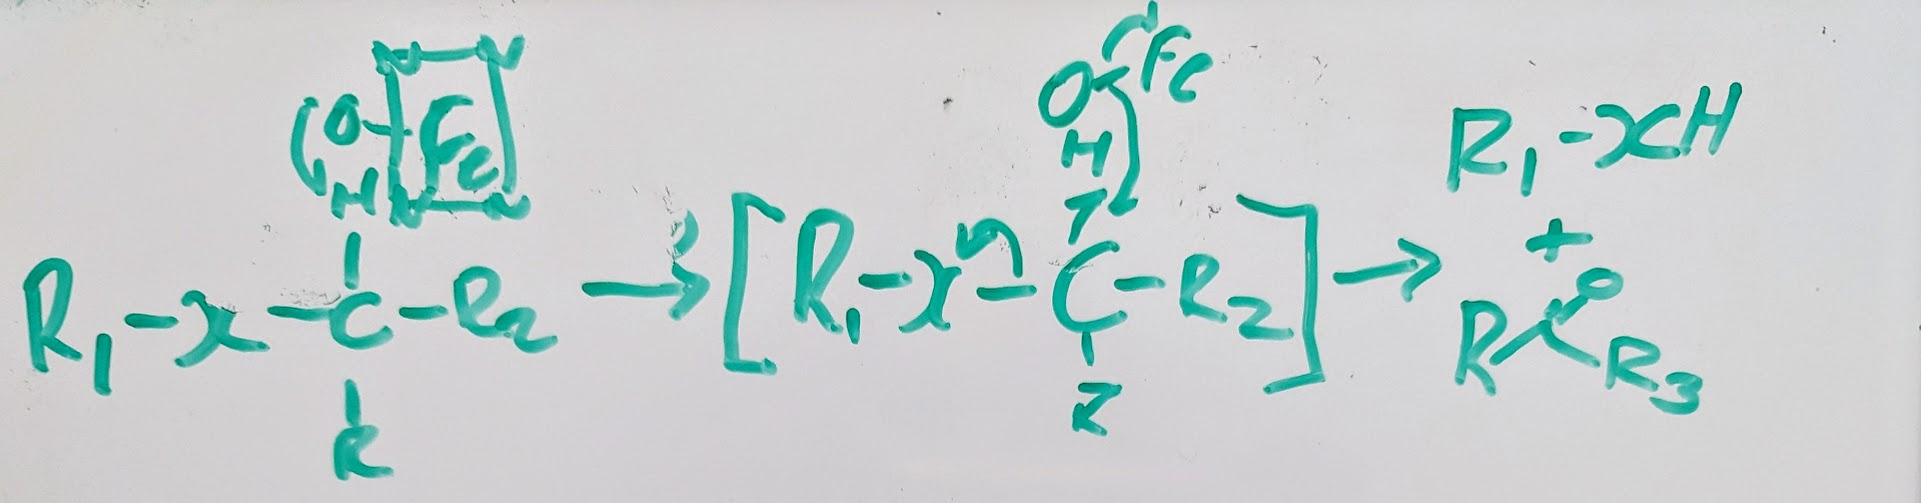 N N
O Fe
H N N
R1-x-C-R2
R
→
O Fe
H
[R1-x-C-R2]
R
→
R1-xH
+
O
R C R3